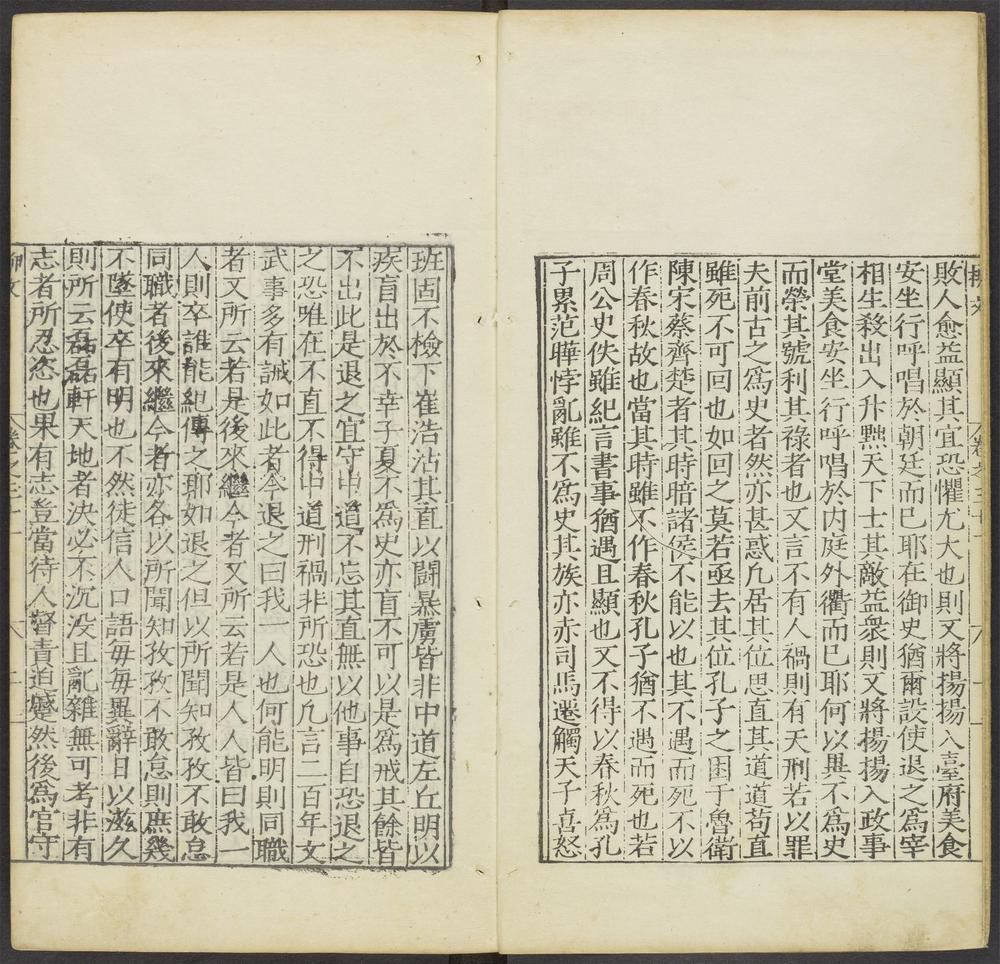 敗人愈益顯其宜恐懼尤大也則又將揚揚入臺府美食
安坐行呼唱於朝廷而已耶在御史猶爾設使退之爲宰
相生殺出入升黜天下士其敵益衆則又將揚揚入政事
堂美食安坐行呼唱於内庭外衢而已耶何以異不爲史
而榮其號利其祿者也又言不有人禍則有天刑若以罪
夫前古之爲史者然亦甚惑凡居其位思直其道道苟直
雖死不可回也如回之莫若亟去其位孔子之困于魯衛
陳宋蔡齊楚者其時暗諸侯不能以也其不遇而死不以
作春秋故也當其時雖不作春秋孔子猶不遇而死也若
周公史佚雖紀言書事猶遇且顯也又不得以春秋爲孔
子累范曄悖亂雖不爲史其族亦赤司馬遷觸天子喜怒
班固不檢下崔浩沽其直以鬭暴虜皆非中道左丘明以
疾盲出於不幸子夏不爲史亦盲不可以是爲戒其餘皆
不出此是退之宜守中道不忘其直無以他事自恐退之
之恐唯在不直不得中道刑禍非所恐也凡言二百年文
武事多有誠如此者今退之曰我一人也何能明則同職
者又所云若是後來繼今者又所云若是人人皆曰我一
人則卒誰能紀傳之耶如退之但以所聞知孜孜不敢怠
同職者後來繼今者亦各以所聞知孜孜不敢怠則庶幾
不墜使卒有明也不然徒信人口語每每異辭日以滋久
則所云磊磊軒天地者決必不沉没且亂雜無可考非有
志者所忍恣也果有志登當待人督責迫蹙然後爲官守